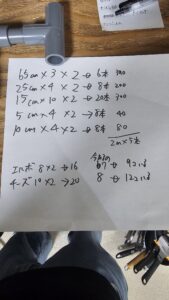 65cm × 3 × 2 → 6本 390
25cm × 4 × 2 → 8本 200
15cm × 10 × 2 → 20本 300
5cm × 4 × 2 → 8本 40
10cm × 4 × 2 → 8本 80
2m × 5本
エルボ 8×2 → 16
チーズ 10×2 → 20